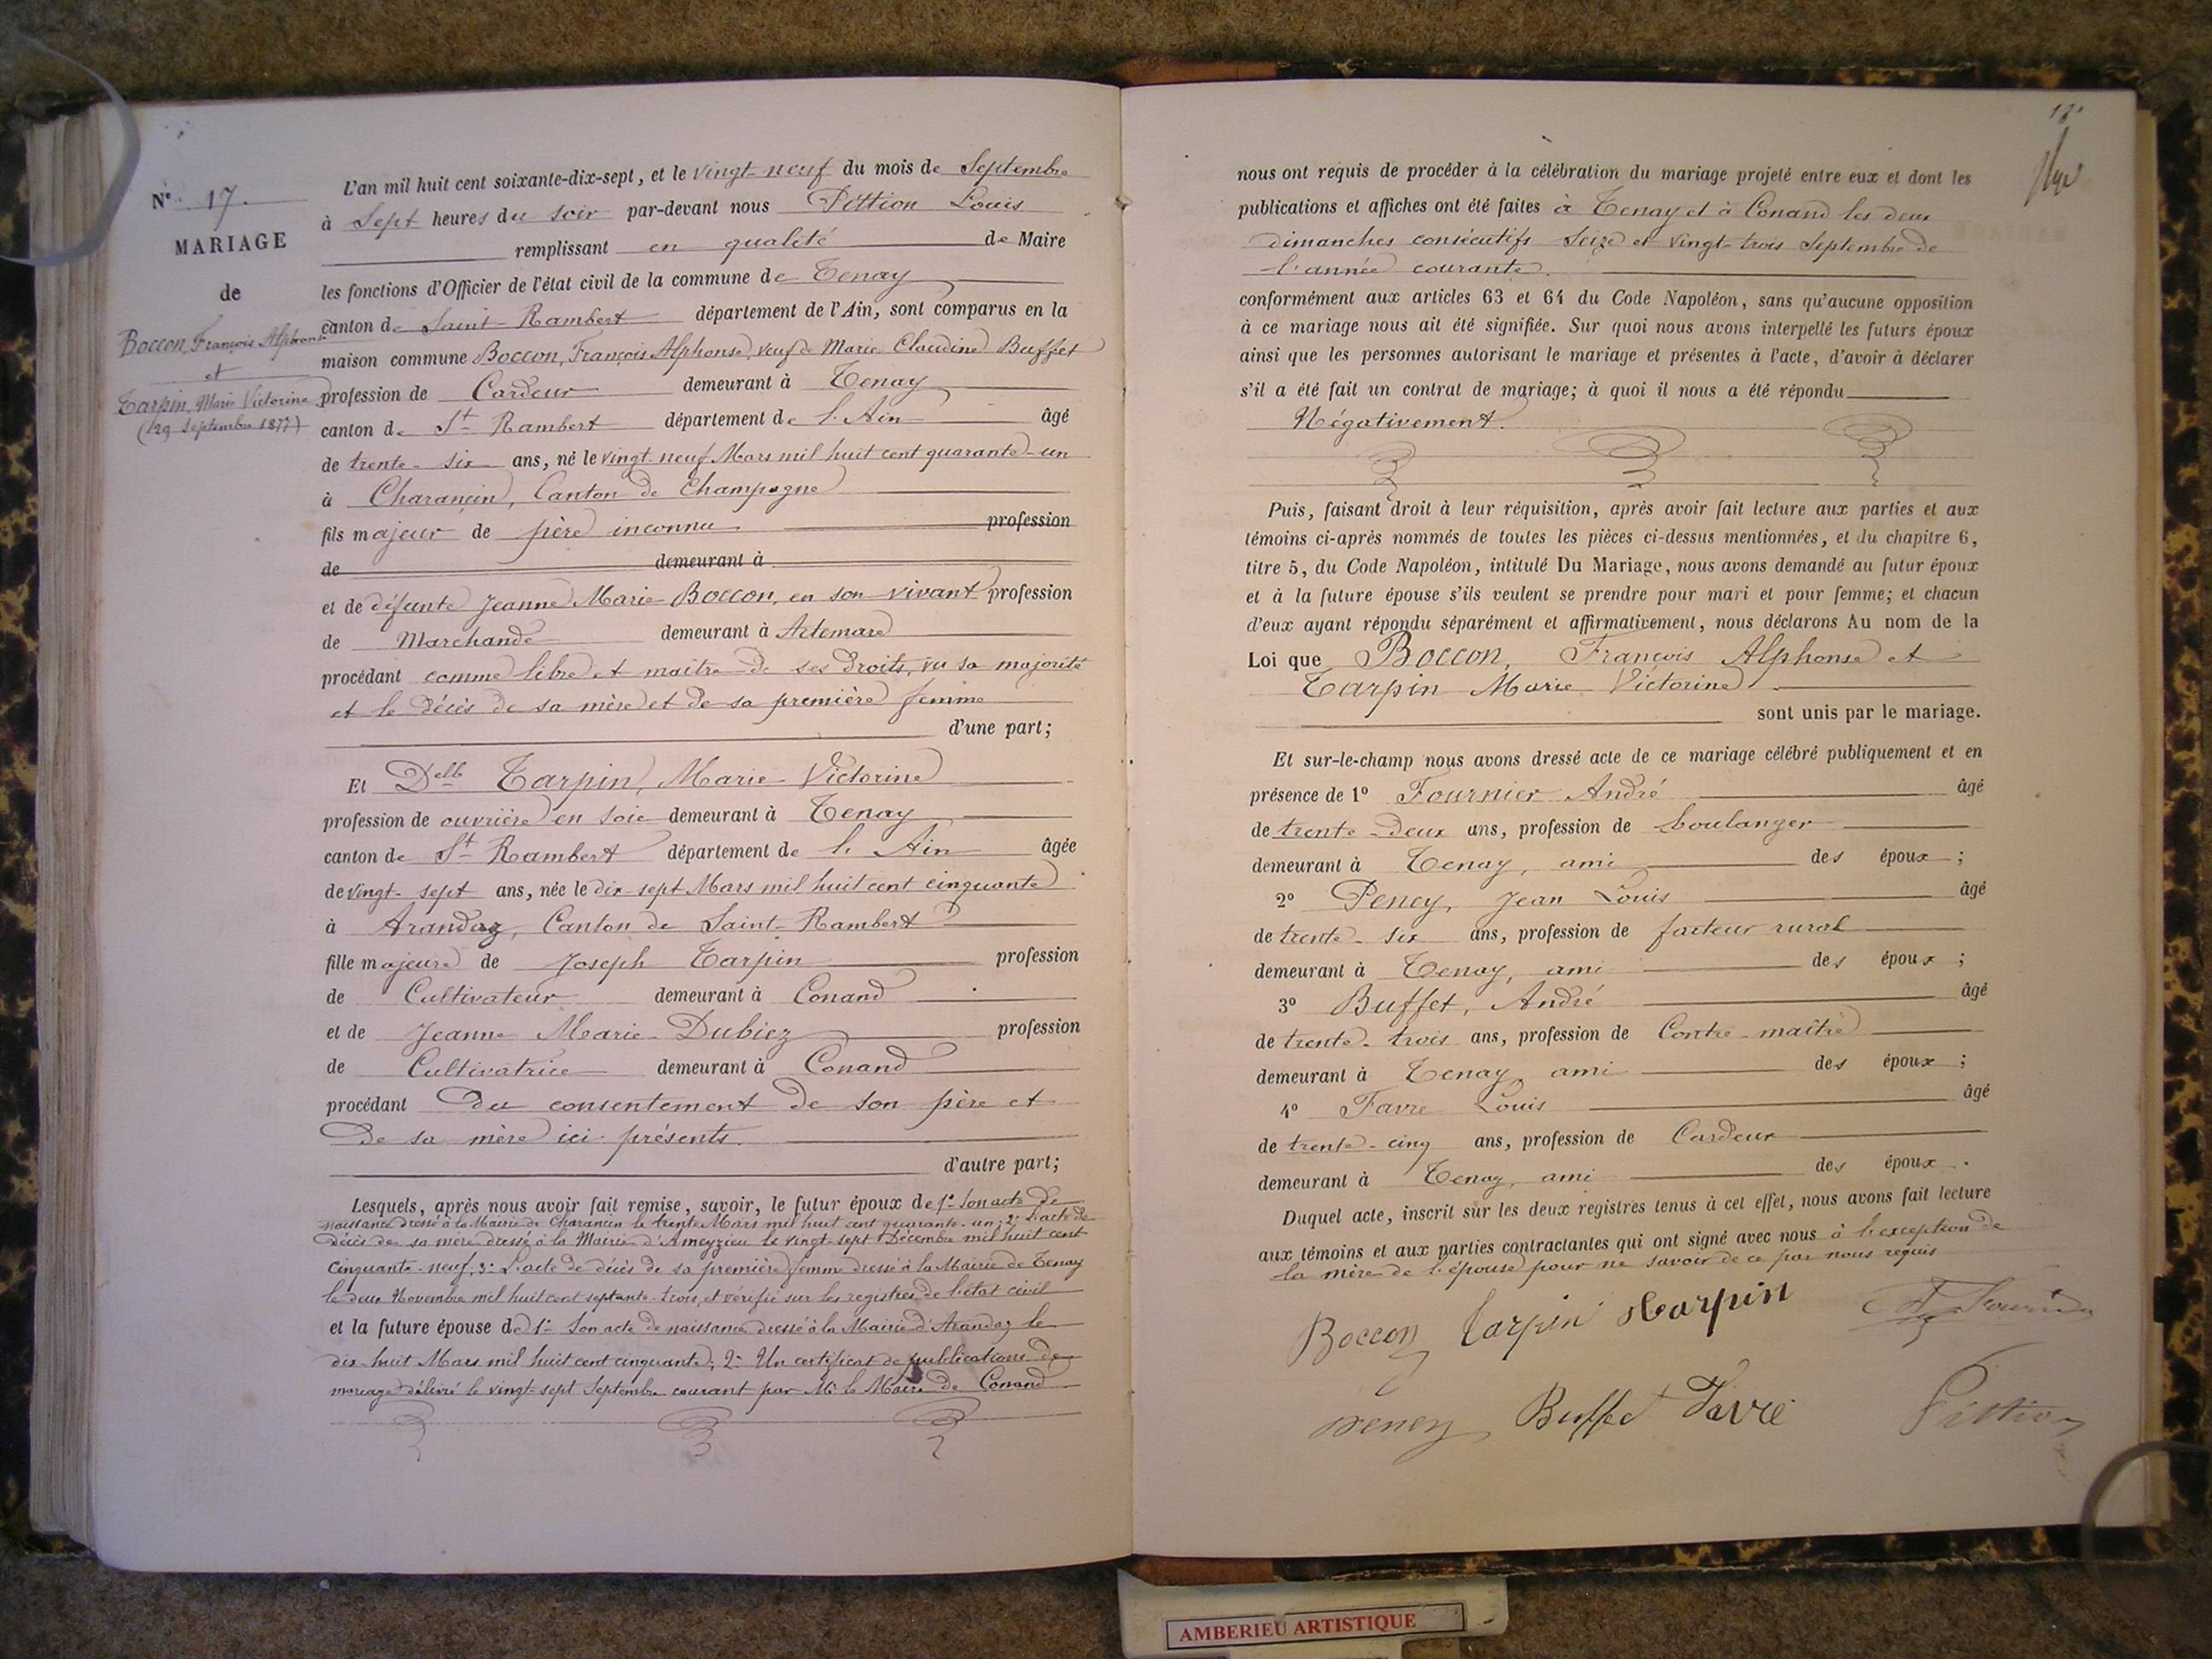 N° 17.
MARIAGE
de
Boccon, François Alphonse
et
Tarpin, Marie Victorine
(29 Septembre 1877)
L'an mil huit cent soixante-dix-sept, et le vingt-neuf du mois de Septembre
à Sept heures du soir par-devant nous Pittion Louis
remplissant en qualité de Maire
les fonctions d'Officier de l'état civil de la commune de Tenay
canton de Saint-Rambert département de l'Ain, sont comparus en la
maison commune Boccon, François Alphonse, veuf de Marie Claudine Buffet
profession de Cardeur demeurant à Tenay
canton de St Rambert département de l'Ain âgé
de trente-six ans, né le vingt-neuf Mars mil huit cent quarante-un
à Charancin, Canton de Champagne
fils majeur de père inconnu profession
de demeurant à
et de défunte Jeanne Marie Boccon, en son vivant profession
de Marchande demeurant à Artemare
procédant comme libre et maître de ses droits, vu sa majorité
et le décès de sa mère et de sa première femme
d'une part;
Et Delle Tarpin, Marie-Victorine
profession de ouvrière en soie demeurant à Tenay
canton de St Rambert département de l'Ain âgée
de vingt-sept ans, née le dix-sept Mars mil huit cent cinquante
à Arandaz, Canton de Saint-Rambert
fille majeure de Joseph Tarpin profession
de Cultivateur demeurant à Conand
et de Jeanne Marie Dubiez profession
de Cultivatrice demeurant à Conand
procédant du consentement de son père et
de sa mère ici présents.
d'autre part;
Lesquels, après nous avoir fait remise, savoir, le futur époux de 1° Son acte de
naissance dressé à la Mairie de Charancin le trente Mars mil huit cent quarante-un; 2° L'acte de
décès de sa mère dressé à la Mairie d'Ameyzieu le vingt-sept Décembre mil huit cent
cinquante-neuf, 3° L'acte de décès de sa première femme dressé à la Mairie de Tenay
le deux Novembre mil huit cent septante-trois, et vérifié sur les registres de l'état civil
et la future épouse de 1° Son acte de naissance dressé à la Mairie d'Arandaz le
dix-huit Mars mil huit cent cinquante; 2° Un certificat de publications de
mariage délivré le vingt-sept Septembre courant par Mr le Maire de Conand
nous ont requis de procéder à la célébration du mariage projeté entre eux et dont les
publications et affiches ont été faites à Tenay et à Conand les deux
dimanches consécutifs Seize et vingt-trois Septembre de
l'année courante.
conformément aux articles 63 et 64 du Code Napoléon, sans qu'aucune opposition
à ce mariage nous ait été signifiée. Sur quoi nous avons interpellé les futurs époux
ainsi que les personnes autorisant le mariage et présentes à l'acte, d'avoir à déclarer
s'il a été fait un contrat de mariage; à quoi il nous a été répondu
Négativement.
Puis, faisant droit à leur réquisition, après avoir fait lecture aux parties et aux
témoins ci-après nommés de toutes les pièces ci-dessus mentionnées, et du chapitre 6,
titre 5, du Code Napoléon, intitulé Du Mariage, nous avons demandé au futur époux
et à la future épouse s'ils veulent se prendre pour mari et pour femme; et chacun
d'eux ayant répondu séparément et affirmativement, nous déclarons Au nom de la
Loi que Boccon, François Alphonse et
Tarpin Marie Victorine
sont unis par le mariage.
Et sur-le-champ nous avons dressé acte de ce mariage célébré publiquement et en
présence de 1° Fournier André âgé
de trente-deux ans, profession de boulanger
demeurant à Tenay, ami des époux;
2° Peney, Jean Louis âgé
de trente-six ans, profession de facteur rural
demeurant à Tenay, ami des époux;
3° Buffet, André âgé
de trente-trois ans, profession de Contre-maître
demeurant à Tenay, ami des époux;
4° Favre Louis âgé
de trente-cinq ans, profession de Cardeur
demeurant à Tenay, ami des époux.
Duquel acte, inscrit sur les deux registres tenus à cet effet, nous avons fait lecture
aux témoins et aux parties contractantes qui ont signé avec nous à l'exception de
la mère de l'épouse pour ne savoir de ce par nous requis
Boccon Tarpin Tarpin Fournier
Peney Buffet Favre Pittion
AMBERIEU ARTISTIQUE